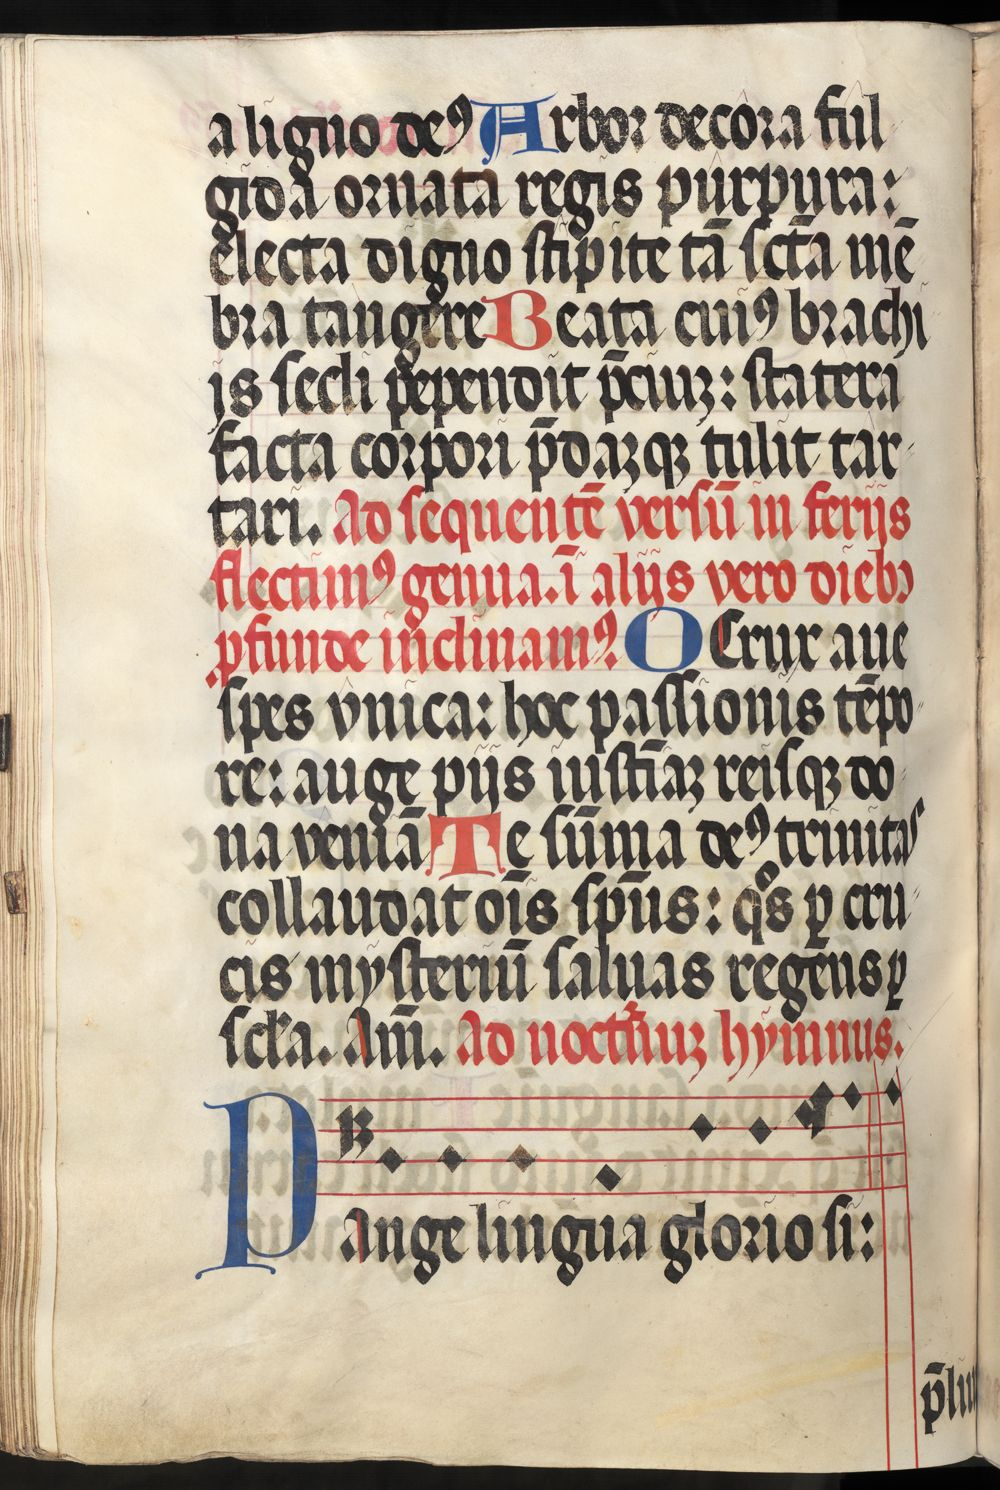 a ligno deꝰ Arbor decora ful
gida ornata regis purpura:
electa digno stipite tā sctā mē
bra tangere Beata cuiꝰ brachi
js secli pependit p̄ciuꝫ: statera
facta corpori p̄daꝫqꝫ tulit tar
tari. Ad sequentē versū in ferijs
flectimꝰ genua. ī alijs vero diebꝫ
ꝓfunde inclinamꝰ. O Crux aue
spes vnica: hoc passionis tēpo
re: auge pijs iustīaꝫ reisqꝫ do
na veniā Te sūma deꝰ trinitas
collaudat oīs spūs: qͦs ꝑ cru
cis mysteriū saluas rege ns ꝑ
scła. Am̄. Ad noctr̄nuꝫ hymnus.
Pange lingua gloriosi:
p̄liu